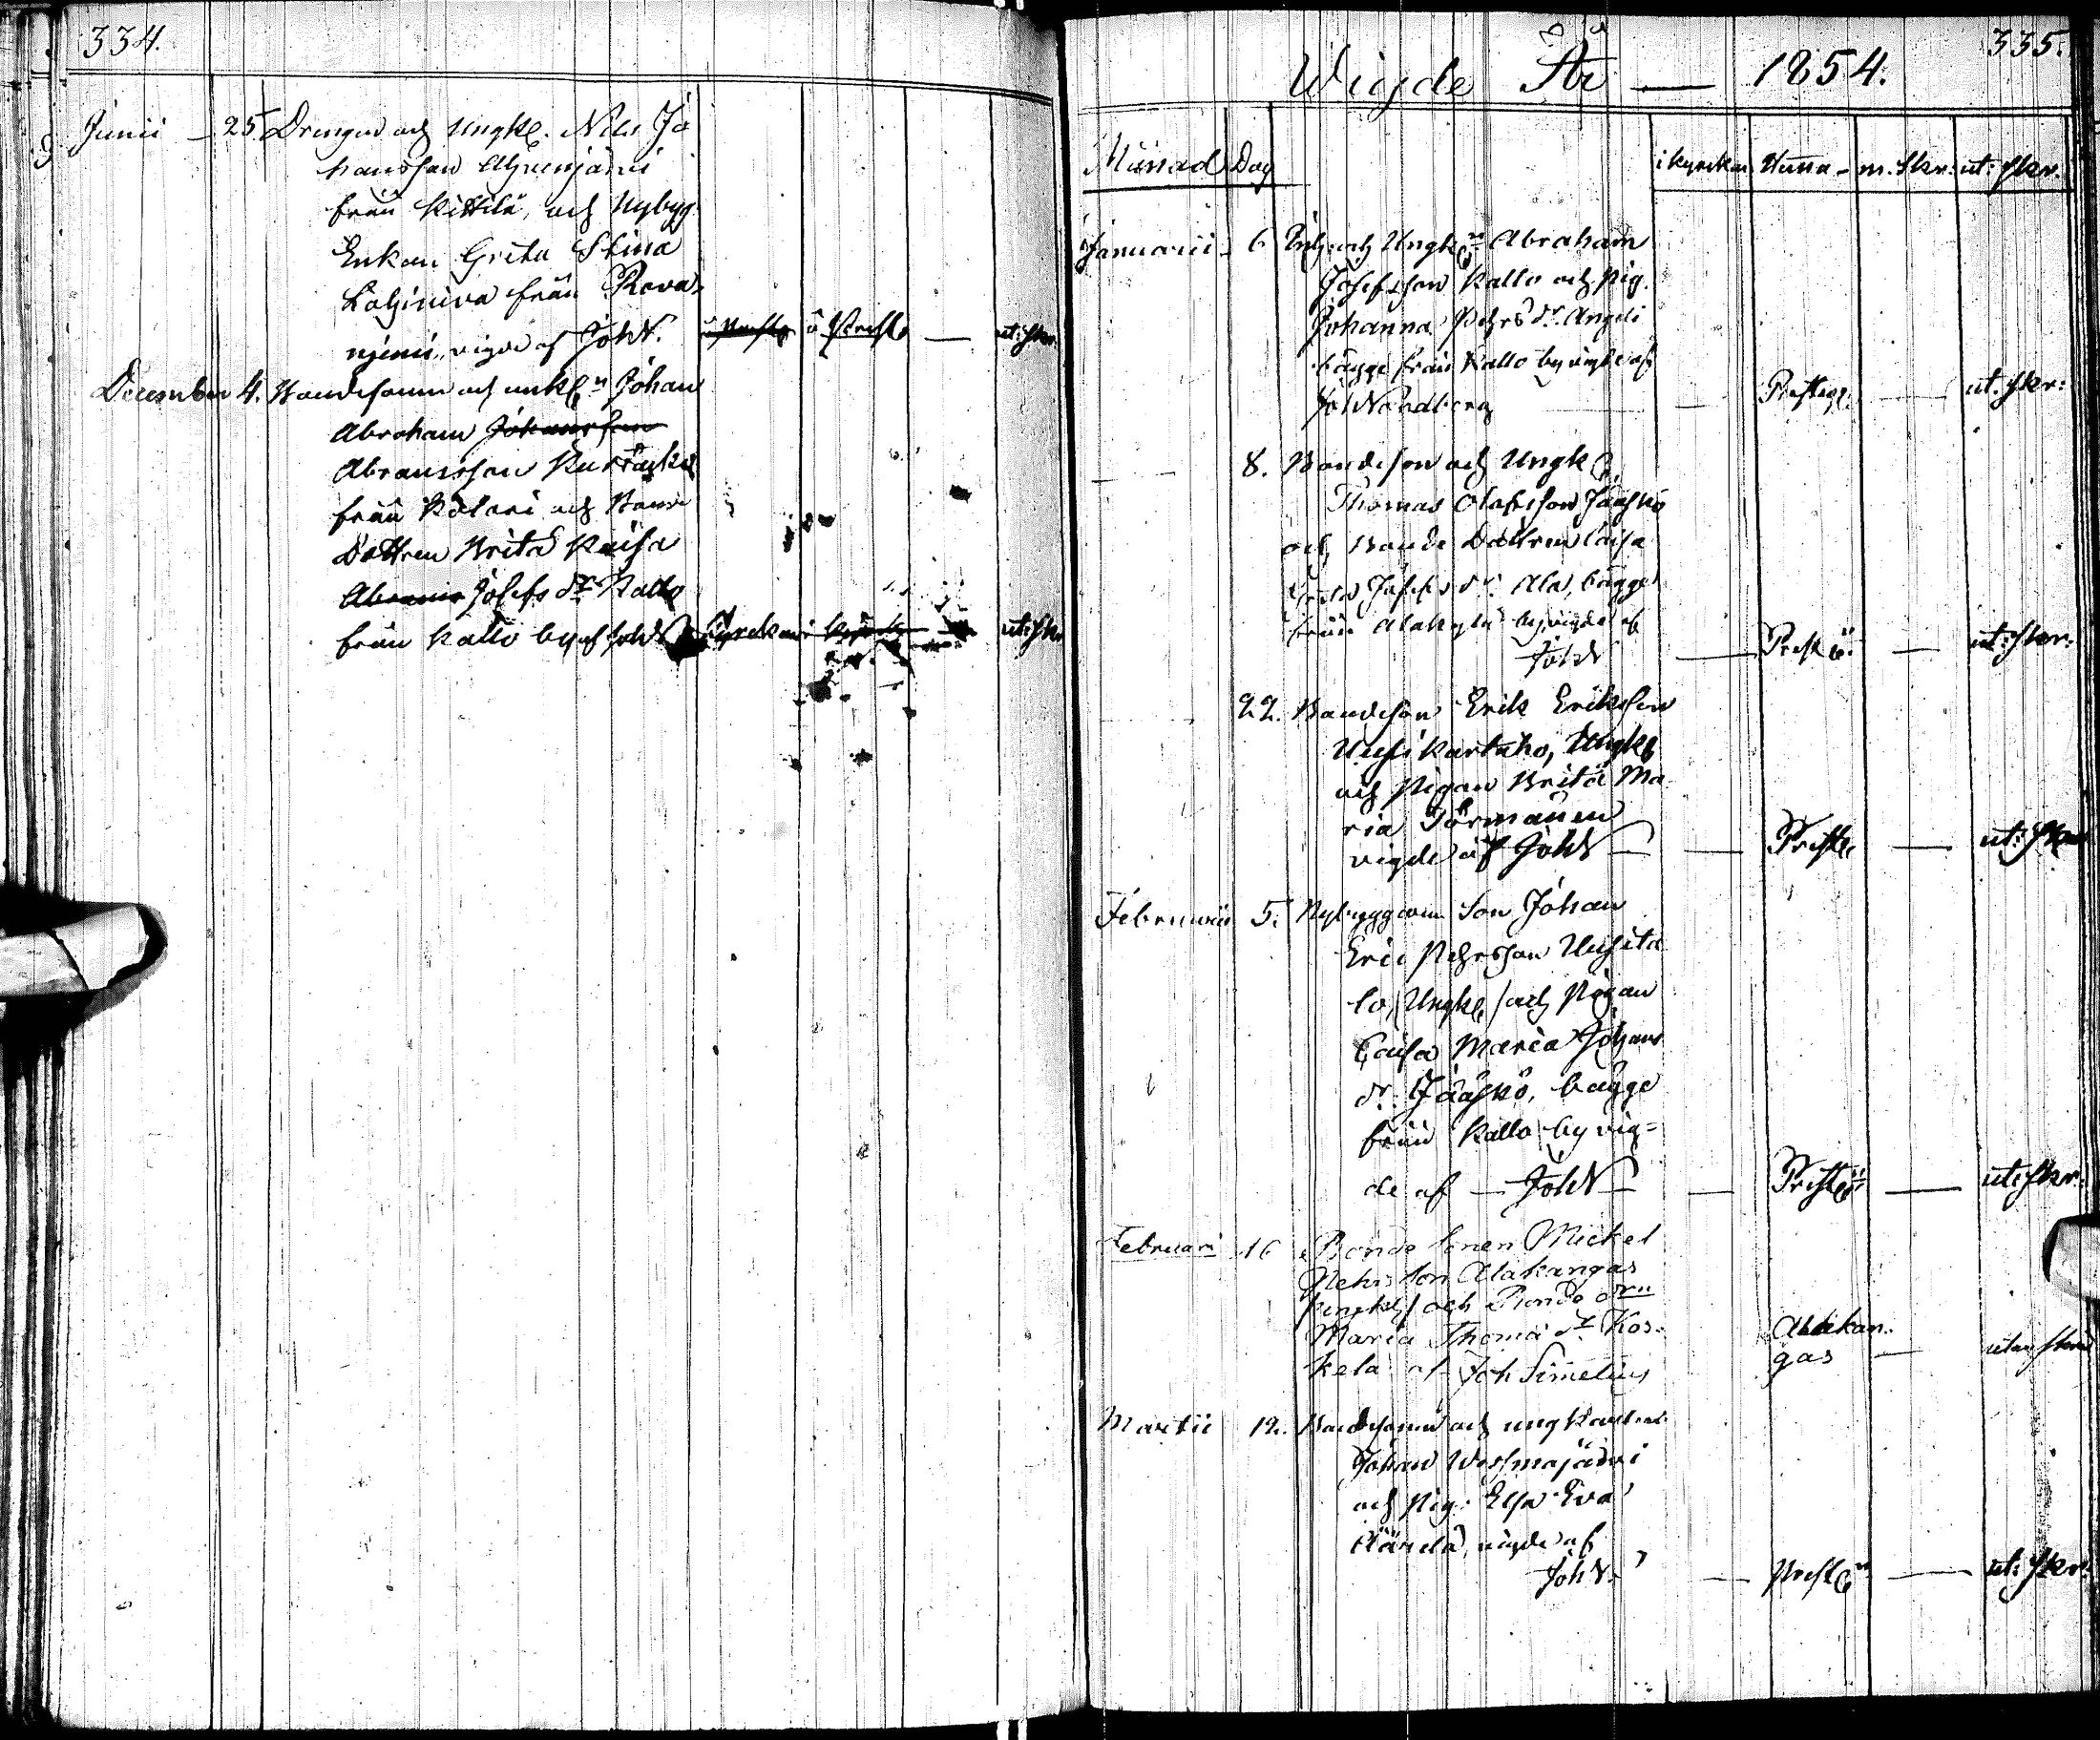 334.
Junii — 25. Drengen och Ungk. Nils Jo
hansson
från Kittilä, och Nybyg
Enkan Greta Stina
Lohiniva från Rova-
njemi, vigde af Joh N. i Prestg — ut: skr.
December 4. Bondesonen och unk Johan
Abraham Johansson
Abramsson
från Kolari och Bonde
Dottren Brita Kaisa
Josefs dr Kallo
från Kallo by af Joh N Kyrckan ut: skr
335.
Wigde År — 1854.
Månad Dag i kyrckan Hema — m. Skr: ut: skr.
Januarii — 6 och Ungk Abraham
Josefsson Kallo och pig.
Johanna Pehrs dr. Angeli
bägge från Kallo by vigde af
Joh Nordberg — Prestg. — ut. skr:
8. Bondeson och Ungk
Thomas Olofsson Jääskö
och Bonde Dottren Caisa
Greta Josefs dr. Ala, bägge
från Alakylä by, vigde af
Joh N — Prestg. — ut: skr.
22. Bondeson Erik Eriksson
Uusikartano, Ungk
och Pigan Brita Ma
ria Törmänen
vigde af Joh N — — Prestg — ut: skr
Februarii 5. Nybyggaren Son Johan
Eric Pehrsson Uusita
lo, /Ungk/ och Pigan
Caisa Maria Johans
dr. Jääskö, bägge
från Kallo by vig=
de af — Joh N — — Prestg — ut: skr.
Februari 16 Bonde Sonen Mickel
Pehrs Son Alakangas
/ungk/ och Bonde drn
Maria Thoma dr Kos-
kela af Joh Simelius
Alakan-
gas — utan skr
Martii 12. Bondesonen och ungkarlen
Johan Wesmajärvi
och pig. Elsa Eva
vigde af
Joh N. — Prestg — ut: skr.